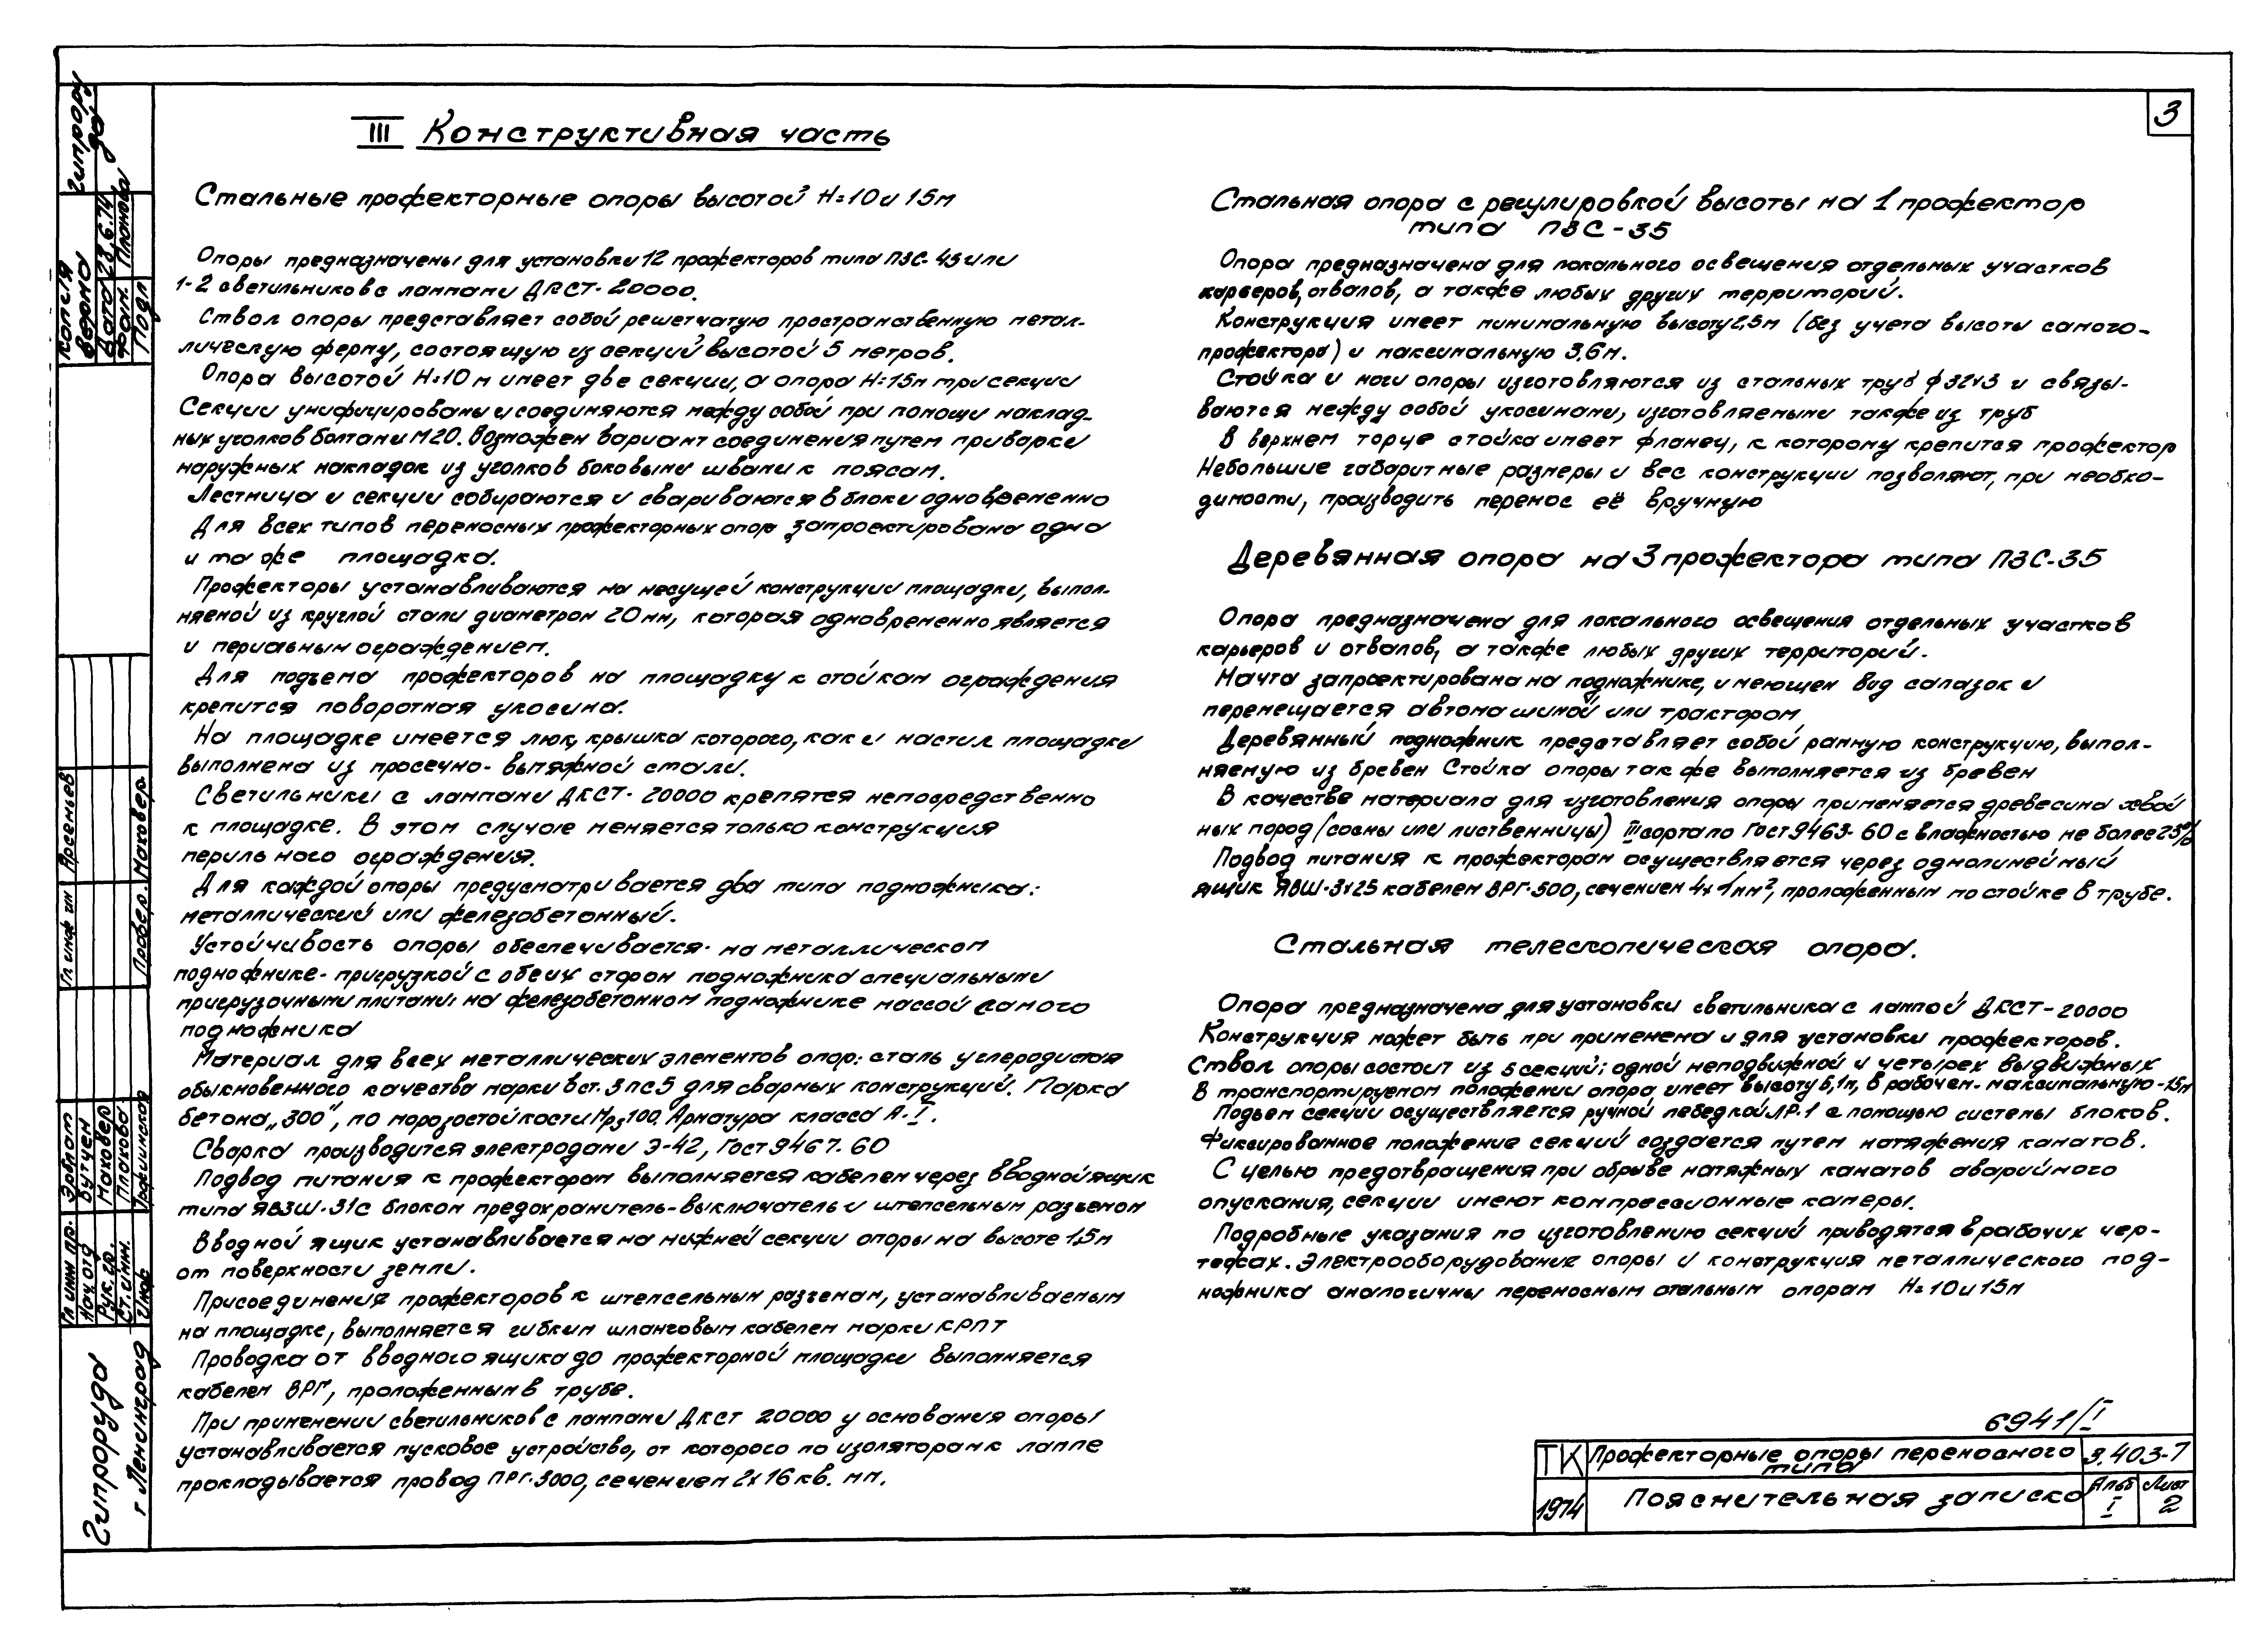 3
III Конструктивная часть
Стальные прожекторные опоры высотой Н=10 и 15м
Опоры предназначены для установки 12 прожекторов типа ПЗС-45 или
1-2 светильников с лампами ДКСТ-20000.
Ствол опоры представляет собой решетчатую пространственную метал-
лическую ферму, состоящую из секций высотой 5 метров.
Опора высотой Н=10м имеет две секции, а опора Н=15м три секции
Секции унифицированы и соединяются между собой при помощи наклад-
ных уголков болтами М20. Возможен вариант соединения путем приварки
наружных накладок из уголков боковыми швами к поясам.
Лестница и секции собираются и свариваются в блоки одновременно
Для всех типов переносных прожекторных опор запроектирована одна
и та же площадка.
Прожекторы устанавливаются на несущей конструкции площадки, выпол-
няемой из круглой стали диаметром 20мм, которая одновременно является
и периальным ограждением.
Для подъема прожекторов на площадку к стойкам ограждения
крепится поворотная укосина.
На площадке имеется люк, крышка которого, как и настил площадки
выполнена из просечно-вытяжной стали.
Светильники с лампами ДКСТ-20000 крепятся непосредственно
к площадке. В этом случае меняется только конструкция
перильного ограждения.
Для каждой опоры предусматривается два типа подножника:
металлический или железобетонный.
Устойчивость опоры обеспечивается на металлическом
подножнике-пригрузкой с обеих сторон подножника специальными
пригрузочными плитами; на железобетонном подножнике массой самого
подножника
Материал для всех металлических элементов опор: сталь углеродистая
обыкновенного качества марки Вст.3пс5 для сварных конструкций. Марка
бетона „300", по морозостойкости Мрз100. Арматура класса А-I.
Сварка производится электродами Э-42, Гост 9467-60
Подвод питания к прожекторам выполняется кабелем через вводной ящик
типа ЯВЗШ-31 с блоком предохранитель-выключатель и штепсельным разъемом
Вводной ящик устанавливается на нижней секции опоры на высоте 1,5м
от поверхности земли.
Присоединения прожекторов к штепсельным разъемам, устанавливаемым
на площадке, выполняется гибким шланговым кабелем марки КРПТ
Проводка от вводного ящика до прожекторной площадки выполняется
кабелем ВРГ, проложенным в трубе.
При применении светильников с лампами ДКСТ 20000 у основания опоры
устанавливается пусковое устройство, от которого по изоляторам к лампе
прокладывается провод ПРГ-3000, сечением 2х16 кв. мм.
Стальная опора с регулировкой высоты на 1 прожектор
типа ПЗС-35
Опора предназначена для локального освещения отдельных участков
карьеров, отвалов, а также любых других территорий.
Конструкция имеет минимальную высоту 2,5м (без учета высоты самого-
прожектора) и максимальную 3,6м.
Стойка и ноги опоры изготовляются из стальных труб ф32х3 и связы-
ваются между собой укосинами, изготовляемыми также из труб
В верхнем торце стойка имеет фланец, к которому крепится прожектор
Небольшие габаритные размеры и вес конструкции позволяют, при необхо-
димости, производить перенос её вручную
Деревянная опора на 3 прожектора типа ПЗС-35
Опора предназначена для локального освещения отдельных участков
карьеров и отвалов, а также любых других территорий.
Мачта запроектирована на подножнике, имеющем вид салазок и
перемещается автомашиной или трактором
Деревянный подножник представляет собой рамную конструкцию, выпол-
няемую из бревен Стойка опоры также выполняется из бревен
В качестве материала для изготовления опоры применяется древесина хвой
ных пород (сосны или лиственницы) III сорта по Гост 9463-60 с влажностью не более 25%
Подвод питания к прожекторам осуществляется через однолинейный
ящик ЯВШ-3х25 кабелем ВРГ-500, сечением 4х1мм², проложенным по стойке в трубе.
Стальная телескопическая опора.
Опора предназначена для установки светильника с лампой ДКСТ-20000
Конструкция может быть при применена и для установки прожекторов.
Ствол опоры состоит из 5 секций: одной неподвижной и четырех выдвижных
В транспортируемом положении опора имеет высоту 6,1м, в рабочем-максимальную-15м
Подъем секции осуществляется ручной лебедкой ЛР-1 с помощью системы блоков.
Фиксированное положение секций создается путем натяжения канатов.
С целью предотвращения при обрыве натяжных канатов аварийного
опускания, секции имеют компрессионные камеры.
Подробные указания по изготовлению секций приводятся в рабочих чер-
тежах. Электрооборудование опоры и конструкция металлического под-
ножника аналогичны переносным стальным опорам Н=10 и 15м
6941/I
ТК
Прожекторные опоры переносного
типа
3.403-7
1974
Пояснительная записка
Альб
I
Лист
2
Гипроруда
г Ленинград
Гл инж пр.
Эрблат
Нач. отд
Бутчен
Рук. гр.
Маковер
Ст. инж.
Плахова
Инж
Гл инж ин
Арсеньев
Провер.
Маковер
Копия
верна
Дата
28.6.74
Фам.
Подп